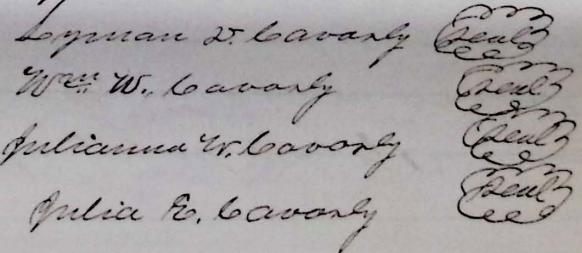 Lyman D. Cavarly Seal
Wm. W. Cavarly Seal
Julianna W. Cavarly Seal
Julia E. Cavarly Seal